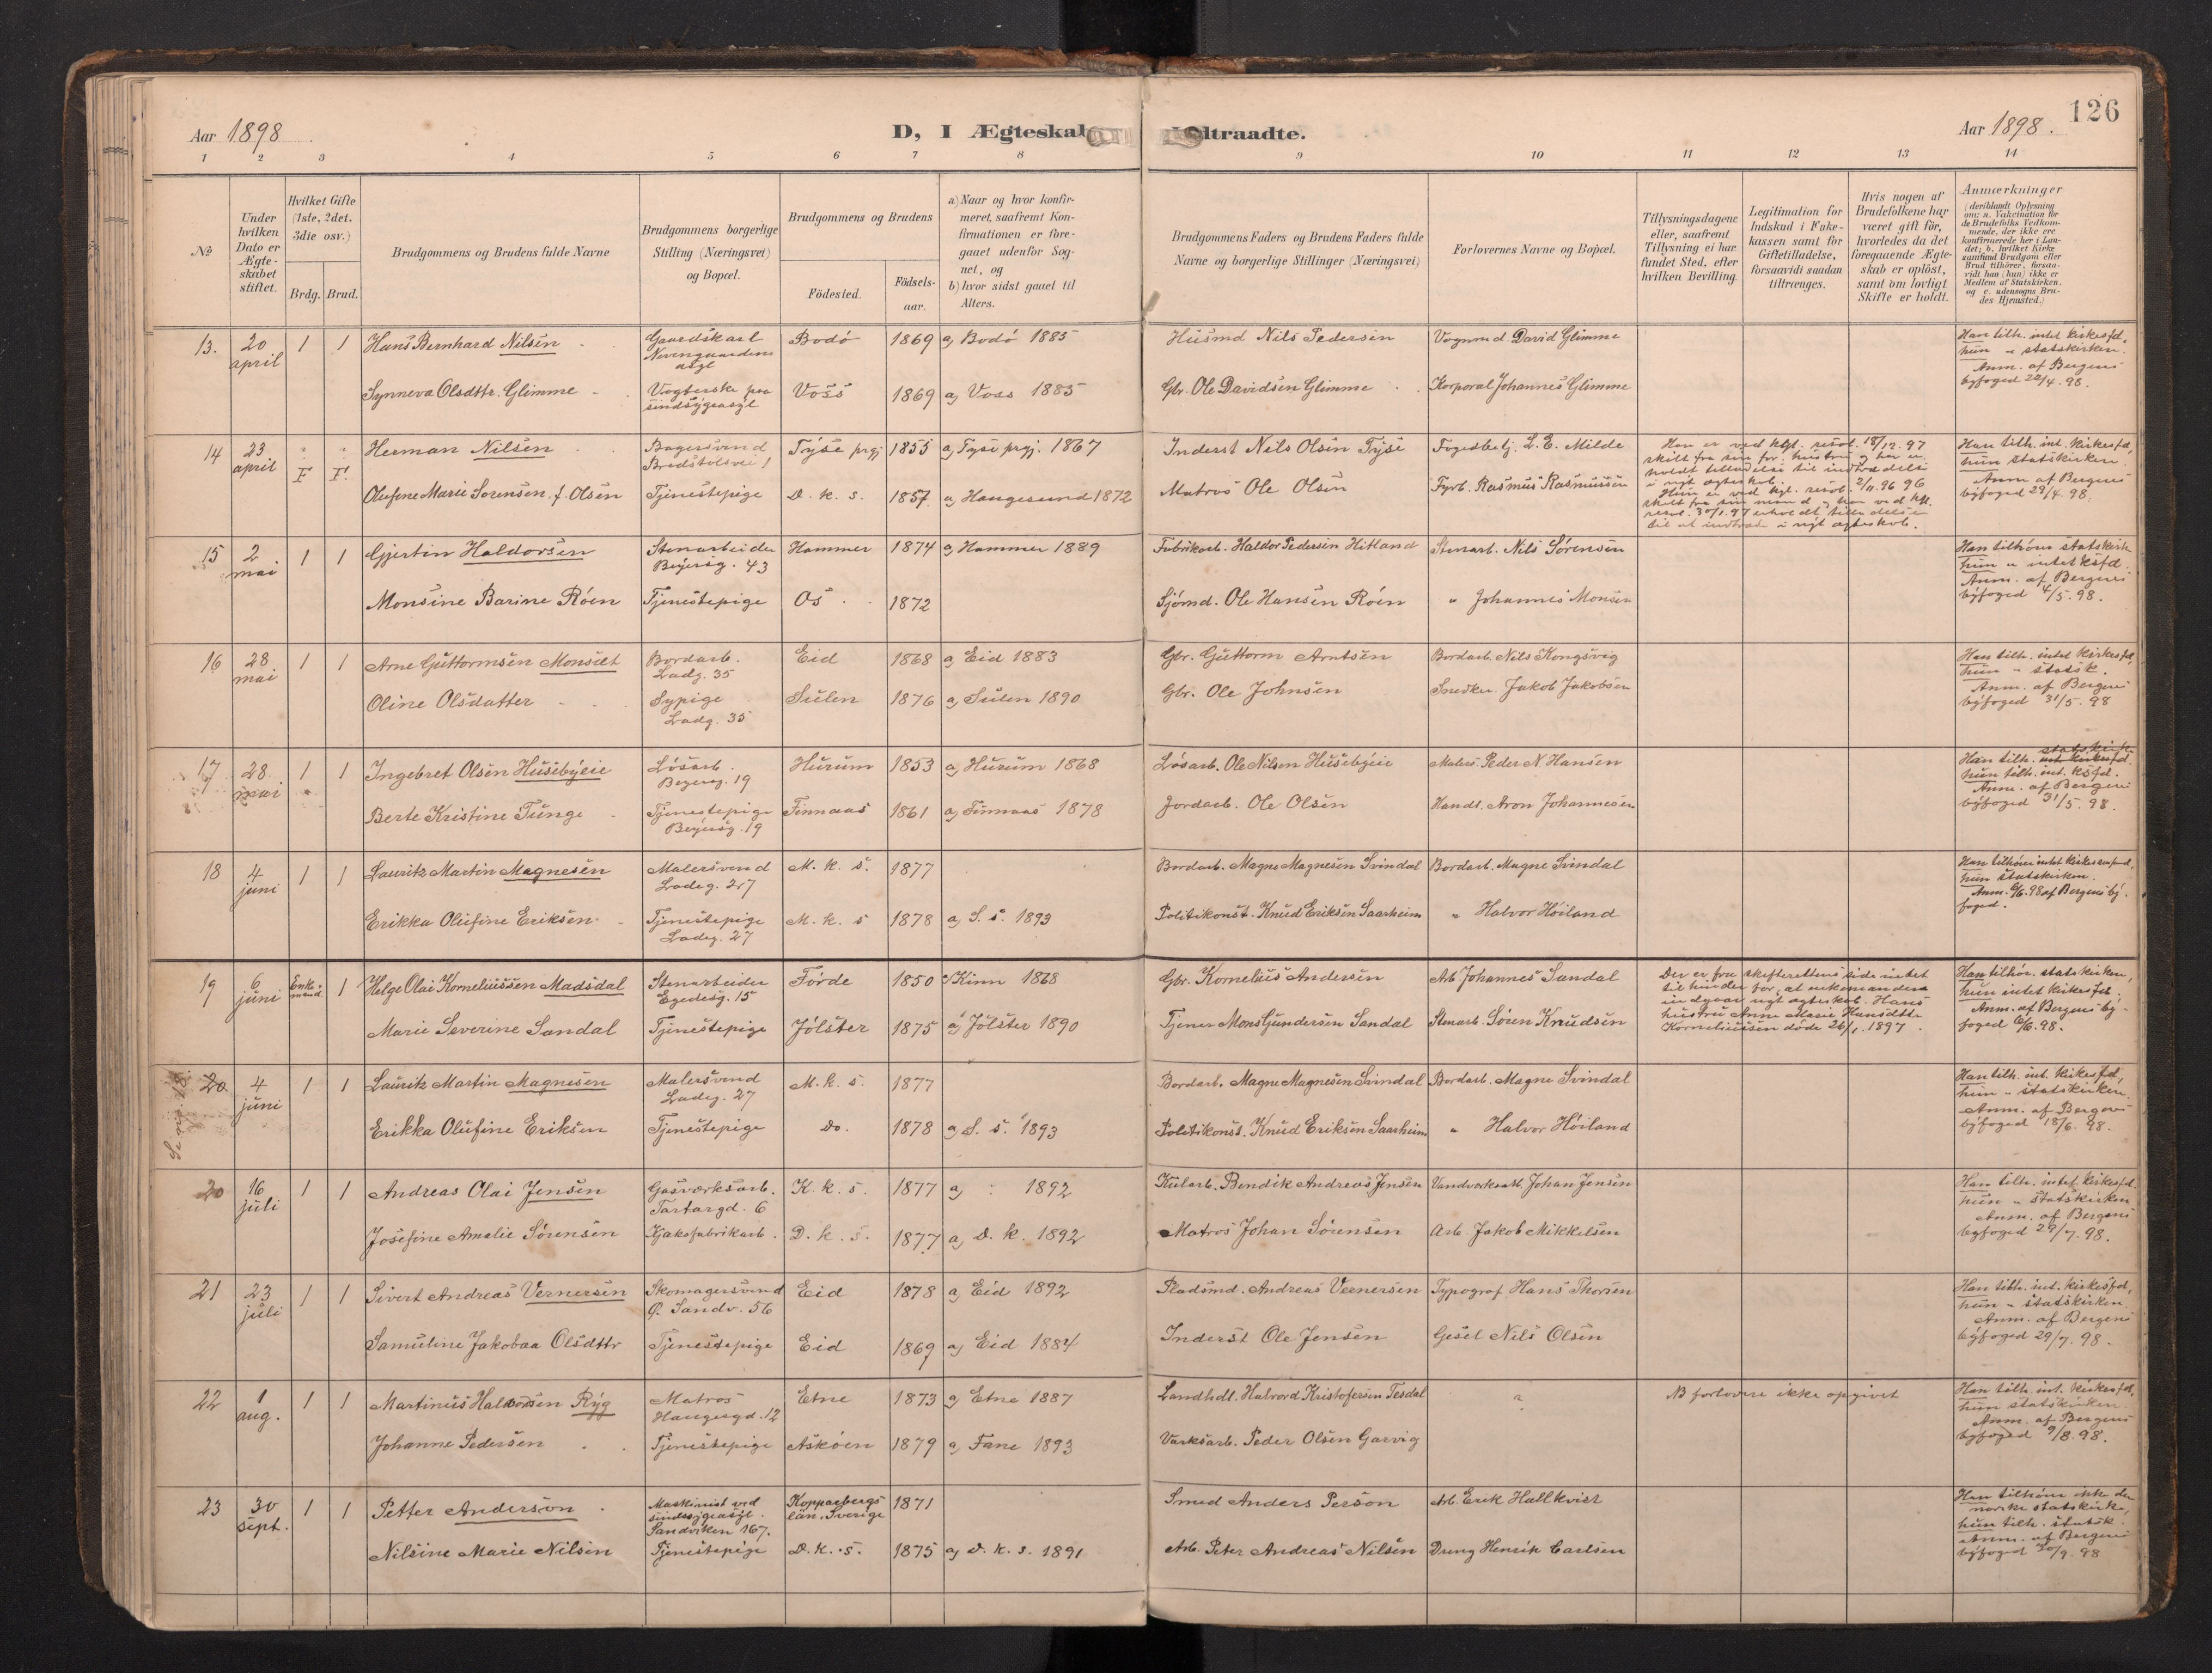 126
Aar 1898
D, I Ægteskab Indtraadte.
Aar 1898.
1 2 3 4 5 6 7 8 9 10 11 12 13 14
No
Under hvilken Dato er Ægteskabet stiftet.
Hvilket Gifte (1ste, 2det, 3die osv.)
Brdg. Brud.
Brudgommens og Brudens fulde Navne
Brudgommens borgerlige Stilling (Næringsvei) og Bopæl.
Brudgommens og Brudens
Födested. Födsels-aar.
a) Naar og hvor konfirmeret, saafremt Konfirmationen er foregaaet udenfor Sognet, og
b) hvor sidst gaaet til Alters.
Brudgommens Faders og Brudens Faders fulde Navne og borgerlige Stillinger (Næringsvei)
Forlovernes Navne og Bopæl.
Tillysningsdagene eller, saafremt Tillysning ei har fundet Sted, efter hvilken Bevilling.
Legitimation for Indskud i Enkekassen samt for Giftetilladelse, forsaavidt saadan tiltrænges.
Hvis nogen af Brudefolkene har været gift før, hvorledes da det foregaaende Ægteskab er oplöst, samt om lovligt Skifte er holdt.
Anmærkninger (deriblandt Oplysning om: a. Vakcination for de Brudefolks Vedkommende, der ikke ere konfirmerede her i Landet; b. hvilket Kirkesamfund Brudgom eller Brud tilhörer, forsaavidt han (hun) ikke er Medlem af Statskirken, og c. udensogns Brudes Hjemsted.)
13. 20 april 1 1 Hans Bernhard Nilsen Gaardskarl asyl Bodö 1869 a) Bodö 1885 Husmd Nils Pedersen Vognmd. David Glimme Han tilh. intet kirkesfd, hun " statskirken. Anm. af Bergens byfoged 22/4. 98.
Synneva Olsdttr. Glimme Vogterske paa sindsygeasyl Voss 1869 a) Voss 1885 Gbr. Ole Davidsen Glimme Korporal Johannes Glimme
14 23 april F F. Herman Nilsen Bagersvend Bredstølsvei 1 Tysse prgj 1855 a) Tysse prgj. 1867 Inderst Nils Olsen Tysse Fogedbetj. L. E. Milde Han er ved kgl. resol. 18/12. 97 skilt fra sin for. hustru og har erholdt tilladelse til indtrædelse i nyt ægteskab. Han tilh. int. kirkesfd, hun statskirken. Anm af Bergens byfoged 29/4. 98.
Olufine Marie Sørensen f. Olsen Tjenestepige D. k. s. 1857. a) Haugesund 1872 Matros Ole Olsen Fyrb. Rasmus Rasmussen Hun er ved kgl. resol. 2/11. 96 skilt fra sin mand og har ved kgl. resol. 30/1. 97 erholdt tilladelse til at indtræde i nyt ægteskab.
15 2 mai 1 1 Gjertin Haldorsen Stenarbeider Beyersg. 43 Hammer 1874 a) Hammer 1889 Fabrikarb. Haldor Pedersen Hitland Stenarb. Nils Sørensen Han tilhører statskirk hun " intet ksfd. Anm. af Bergens byfoged 4/5. 98.
Monsine Barine Røen Tjenestepige Os 1872 Sjømd. Ole Hansen Røen " Johannes Monsen
16 28 mai 1 1 Arne Guttormsen Monsæt Bordarb. Ladg. 35 Eid 1868 a) Eid 1883 Gbr. Guttorm Arntsen Bordarb. Nils Kongsvig Han tilh. intet kirkesfd, hun " statsk. Anm. af Bergens byfoged 31/5. 98
Oline Olsdatter Sypige Ladg. 35 Sulen 1876 a) Sulen 1890 Gbr. Ole Johnsen Snedker. Jakob Jakobsen
17 28 mai 1 1 Ingebret Olsen Husebyeie Løsarb. Beyersg. 19 Hurum 1853 a) Hurum 1868 Løsarb. Ole Nilsen Husebyeie Malers. Peder N Hansen Han tilh. statskirke int kirkesfd. hun tilh. int. ksfd. Anm. af Bergens byfoged 31/5. 98.
Berte Kristine Tunge Tjenestepige Beyersg. 19 Finnaas 1861 a) Finnaas 1878 Jordarb. Ole Olsen Handl. Aron Johannesen
18 4 juni 1 1 Lauritz Martin Magnesen Malersvend Ladeg. 27 M. k. s. 1877 Bordarb. Magne Magnesen Svindal Bordarb. Magne Svindal Han tilhører intet kirkesamfund, hun statskirken. Anm. 6/6. 98 af Bergens byfoged.
Erikka Olufine Eriksen Tjenestepige Ladeg. 27 M. k. s 1878 a) S. s. 1893 Politikonst. Knud Eriksen Saarheim " Halvor Høiland
19 6 juni Enkemand 1 Helge Olai Korneliussen Madsdal Stenarbeider Egedesg. 15 Førde 1850 a) Kinn 1868 Gbr. Kornelius Andersen Arb Johannes Sandal Der er fra skifterettens side intet til hinder for, at enkemanden indgaar nyt ægteskab. Hans hustru Anne Marie Hansdttr Korneliussen døde 26/1. 1897. Han tilhør. statskirken, hun intet kirkesfd. Anm. af Bergens byfoged 6/6. 98.
Marie Severine Sandal Tjenestepige Jølster 1875 a) Jølster 1890 Tjener Mons Gundersen Sandal Stenarb. Søren Knudsen
Se no. 18.
20 4 juni 1 1 Lauritz Martin Magnesen Malersvend Ladeg. 27 M. k. s. 1877 Bordarb. Magne Magnesen Svindal Bordarb. Magne Svindal Han tilh. int. kirkesfd, hun " statskirken. Anm. af Bergens byfoged 18/6. 98.
Erikka Olufine Eriksen Tjenestepige do. 1878 a) S. s. 1893 Politikonst. Knud Eriksen Saarheim " Halvor Høiland
20 16 juli 1 1 Andreas Olai Jensen Gasværksarb. Tartargd. 6 K. k. s. 1877 a) 1892 Kularb. Bendik Andreas Jensen Vandværksarb. Johan Jensen Han tilh. intet kirkesfd. hun " statskirken Anm. af Bergens byfoged 29/7. 98.
Josefine Amalie Sørensen Kjaksfabrikarb. D. k. s. 1877 a) D. k. 1892 Matros Johan Sørensen Arb. Jakob Mikkelsen
21 23 juli 1 1 Sivert Andreas Vernersen Skomagersvend Ø. Sandv. 56 Eid 1878 a) Eid 1892 Pladsmd. Andreas Vernersen Typograf Hans Thorsen Han tilh. int. kirkesfd, hun " statskirken Anm. af Bergens byfoged 29/7. 98.
Samuline Jakobaa Olsdttr Tjenestepige Eid 1869 a) Eid 1884 Inderst Ole Jensen Gesel Nils Olsen
22 1 aug. 1 1 Martinus Halvordsen Ryg Matros Haugesgd. 12 Etne 1873 a) Etne 1887 Landhdl. Halvord Kristofersen Tesdal ? NB forlovere ikke opgivet Han tilh. int. kirkesfd, hun statskirken. Anm. af Bergens byfoged 9/8. 98.
Johanne Pedersen Tjenestepige Askøen 1879 a) Fane 1893 Værksarb. Peder Olsen Garvig
23 30 sept. 1 1 Petter Anderson Maskinist ved sindssygeasyl. Sandviken 167. Kopparbergs län, Sverige 1871 Smed Anders Person Arb. Erik Hallkvist Han tilhører ikke den norske statskirke, hun tilh. statsk. Anm. af Bergens byfoged 30/9. 98
Nilsine Marie Nilsen Tjenestepige D. k. s. 1875 a) D. k. s. 1891 Arb. Peter Andreas Nilsen Dreng Henrik Carlsen